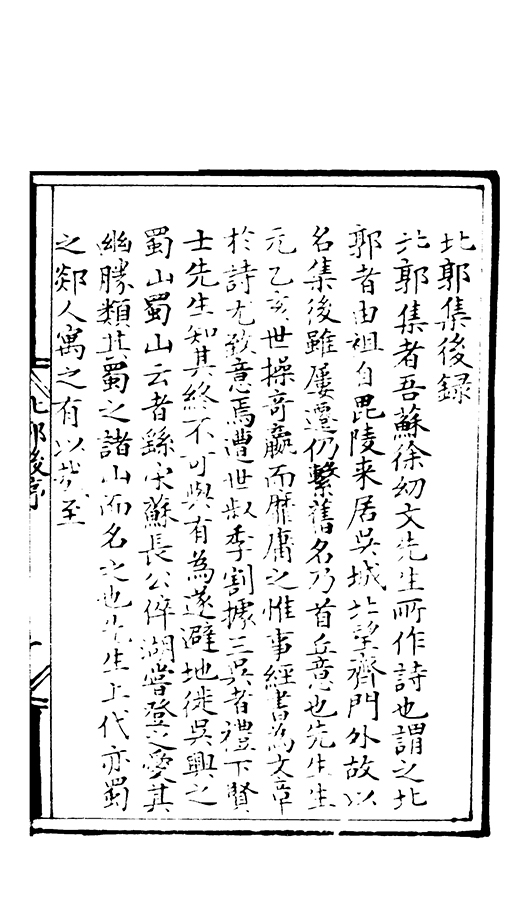 北郭集後録
北郭集者吾蘇徐幼文先生所作詩也謂之北
郭者由祖自毘陵来居吳城北望齊門外故以
名集後雖屢遷仍繫舊名乃首丘意也先生生
元乙亥世操奇贏而靡庸之惟事經書為文章
於詩尤致意焉遭世叔季割據三吳者禮下賢
士先生知其終不可與有為遂避地徙吳興之
蜀山蜀山云者繇宋蘇長公倅湖嘗登之愛其
幽勝類其蜀之諸山而名之也先生上代亦蜀
之郯人寓之有以哉至
北郭後序